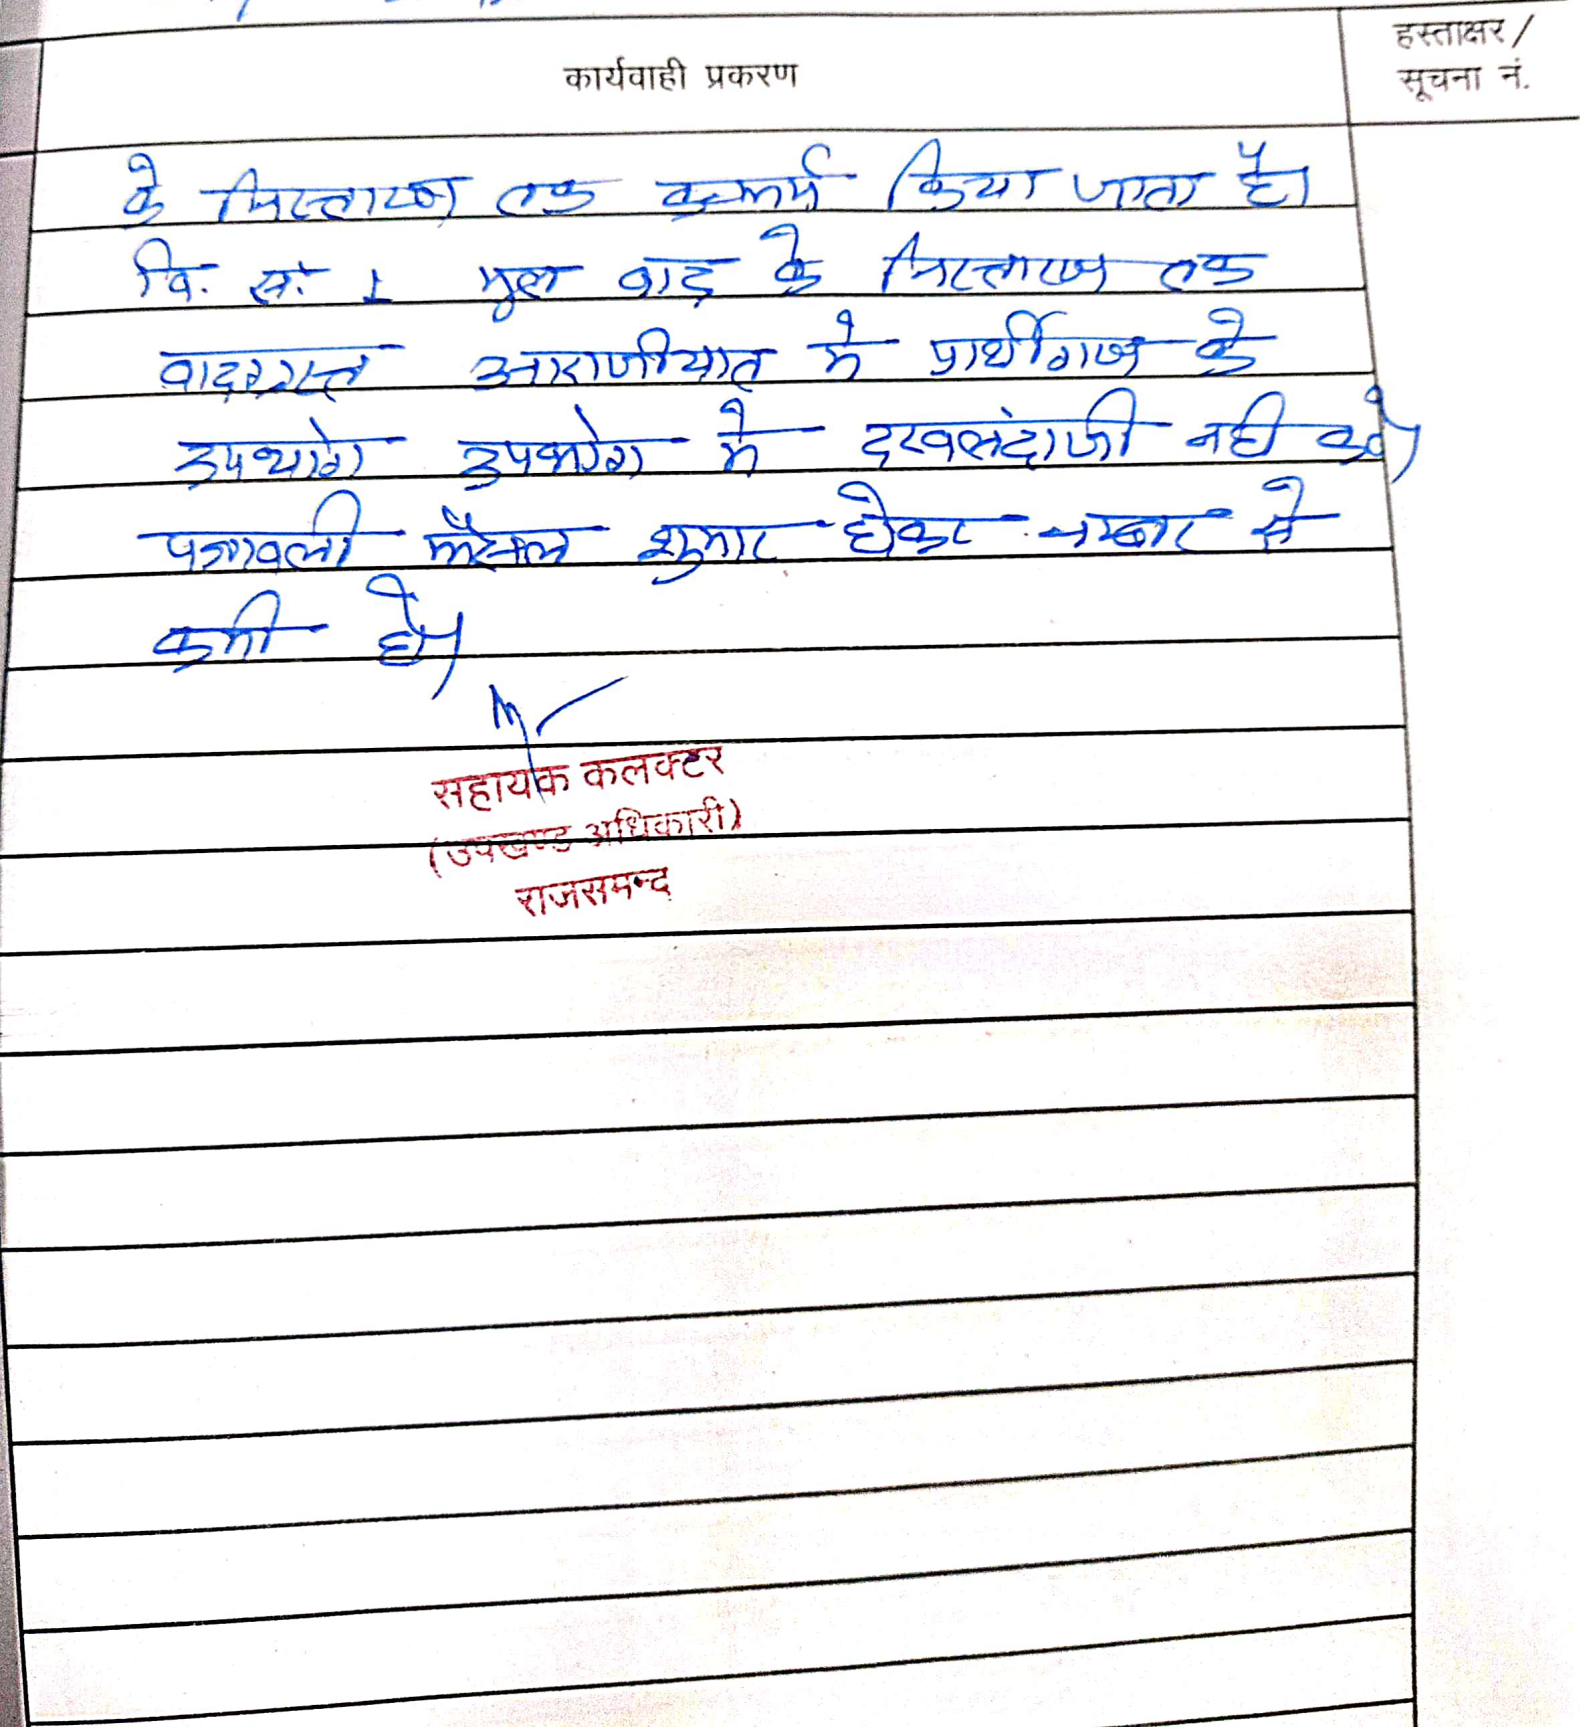 कार्यवाही प्रकरण
हस्ताक्षर /
सूचना नं.
के निस्तारण तक कन्फर्म किया जाता है।
वि. सं. 1 मुल वाद के निस्तारण तक
वादग्रस्त आराजीयात मे प्रार्थीगण के
उपयोग उपभोग मे दखलंदाजी नही करे।
पत्रावली फैसल शुमार होकर नम्बर से
कमी हो।
सहायक कलक्टर
(उपखण्ड अधिकारी)
राजसमन्द